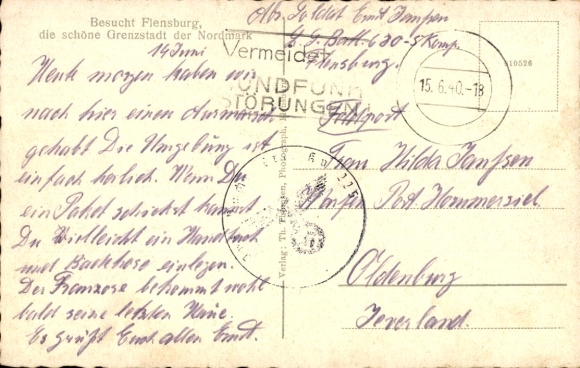 Besucht Flensburg,
die schöne Grenzstadt der Nordmark
14 Juni
Heute morgen haben wir
nach hier einen Ausmarsch
gehabt Die Umgebung ist
einfach herlich. Wenn Du
ein Paket schickst kannst
Du vielleicht ein Handtuch
und Badehose einlegen.
Der Franzose bekommt wohl
bald seine letzten Haue.
Es grüßt Euch allen Ernst.
Verlag: Th. Thomsen, Photograph,
Abs. Soldat Ernst Janssen
Batt. 630-5 Komp.
Flensburg.
Vermeidet
RUNDFUNK
STÖRUNGEN
15.6.40.-18
10526
Feldpost
Frau Hilda Janssen
Post Hammersiel
Oldenburg
Jeverland.